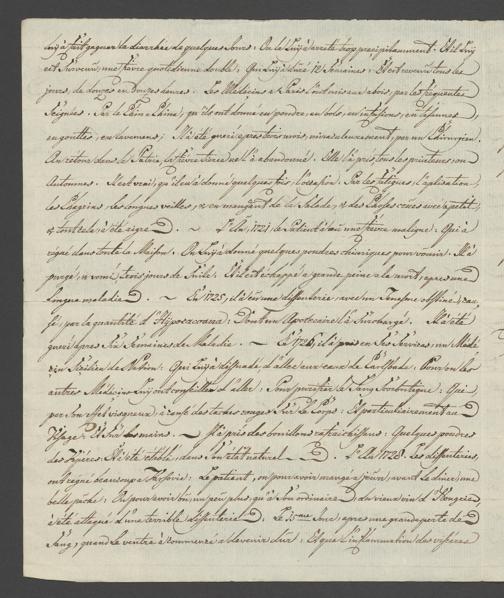 luÿ à fait gagner la diarrhée de quelques Jours. On lé luÿ à arrêté trop precipitamment. Et il luÿ
est Survenu, une fiévre quotidienne double; Qui luÿ à duré 12 Semaines. Et est revenu tous les
jours, de douze en douze heures. Les Médecins à Paris l'ont mis aux abois, par les frequentes
Seignées. Par le Quin-a-Quina; qu'ils ont donné en poudre, en bolo, en infusions, en
en gouttes, en lavemens; Il à été gueri après trois mois, vivra heureusement, par un Chirurgien.
Au retour dans la Patrie, la fiévre tierce ne l'à abandonné. Elle l'à pris, tous les printems, ou
Automnes. Il est vrai, qu'il en à donné quelques fois, l'ocasion. Par des fatigues, l'aplication,
les Chagrins, des longues veilles, & en mangeant de la Salade, & des
& tout cela à été aigre. ~ L'A. 1721, le Patient à eu une fiévre maligne. Qui à
régné dans toute la Maison. On luÿ à donné quelques poudres chimiques pour vomir. Il à
purgé, & vomi, trois jours de Suite. Il à échappé à grande peine à la mort, après une
longue maladie. ~ En 1725, il à eu une dissenterie, avec un Tenesme obstiné; cau-
sé, par la quantité d' ; Dont un Apotecaire l'à Surchargé. Il à été
gueri après Six Semaines de Maladie. ~ En 1726, il à pris en Son Service, un Méde-
cin de Nation. Qui luÿ à dissuadé, d'aller aux eaux de Carlsbade. Pour qu'les
autres Médecins luÿ ont conseillés d'aller. Pour purifier le Sang Scorbutique; Qui
par Son effet visqueux, à causé des taches rouges, Sur le Corps; Et particuliairement au
Visage: Et Sur les mains. ~ Il à pris des bouillons rafraichissans; Quelques poudres
des Vipéres. Il à été établi, dans Son état naturel. ~ L'A. 1728. Les dissenteries,
ont regné beaucoup à Le patient, on pouvoir mangé à jeun, avant le diner, une
belle pêche; Et pour avoir bû, un peu plus, qu'à Son ordinaire, du vieux vin d'Hongrie
à été attaqué d'une terrible dissenterie. Le Jour, après une grande perte de
Sang, quand le ventre à commencé à devenir dur; Et que l'inflammation des viscéres